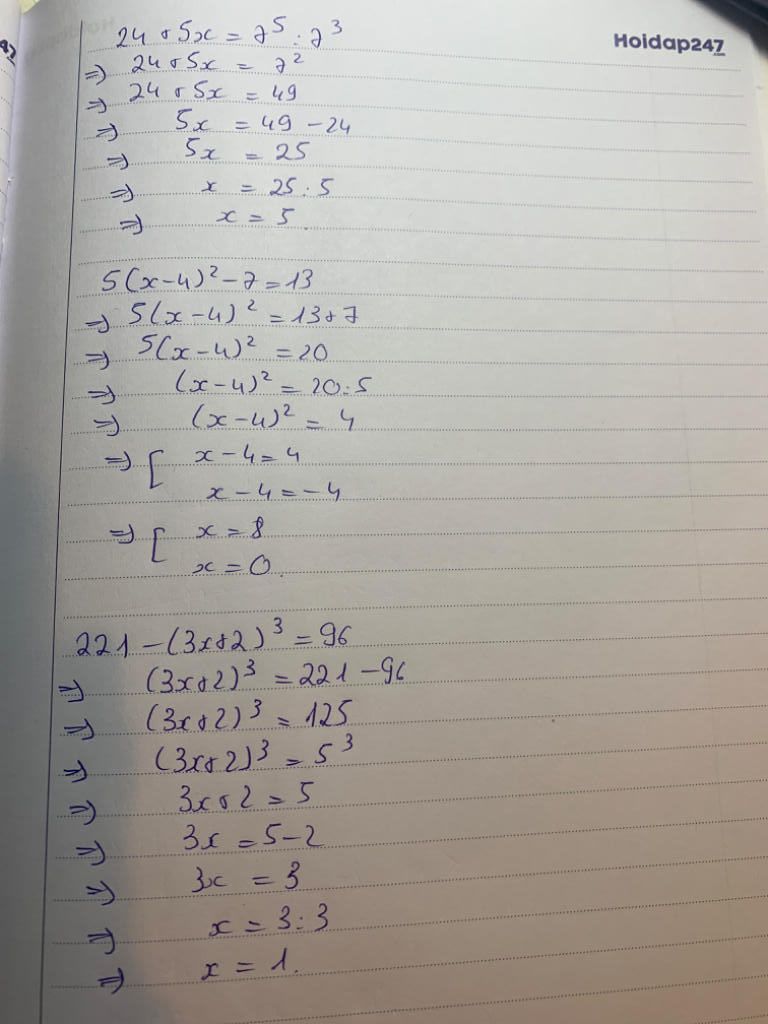 Hoidap247
24 + 5x = 7⁵ : 7³
⇒ 24 + 5x = 7²
⇒ 24 + 5x = 49
⇒ 5x = 49 - 24
⇒ 5x = 25
⇒ x = 25 : 5
⇒ x = 5
5(x-4)² - 7 = 13
⇒ 5(x-4)² = 13+7
⇒ 5(x-4)² = 20
⇒ (x-4)² = 20:5
⇒ (x-4)² = 4
⇒ [ x - 4 = 4
x - 4 = -4
⇒ [ x = 8
x = 0.
221 - (3x+2)³ = 96
⇒ (3x+2)³ = 221 - 96
⇒ (3x+2)³ = 125
⇒ (3x+2)³ = 5³
⇒ 3x+2 = 5
⇒ 3x = 5-2
⇒ 3x = 3
⇒ x = 3:3
⇒ x = 1.